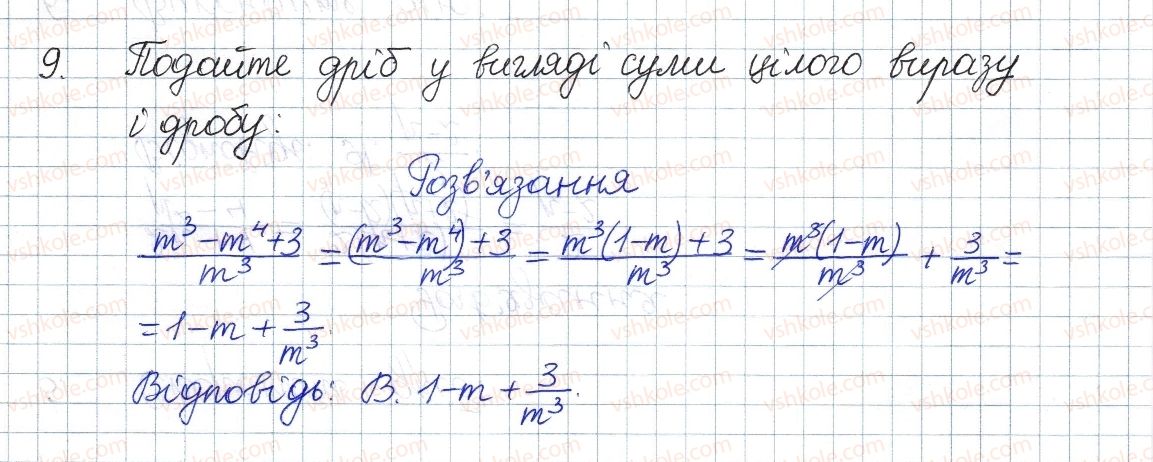 9. Подайте дріб у вигляді суми цілого виразу
і дробу:
Розв'язання
(m³-m⁴+3)/m³ = ((m³-m⁴)+3)/m³ = (m³(1-m)+3)/m³ = m³(1-m)/m³ + 3/m³ =
= 1-m + 3/m³.
Відповідь: В. 1-m + 3/m³.